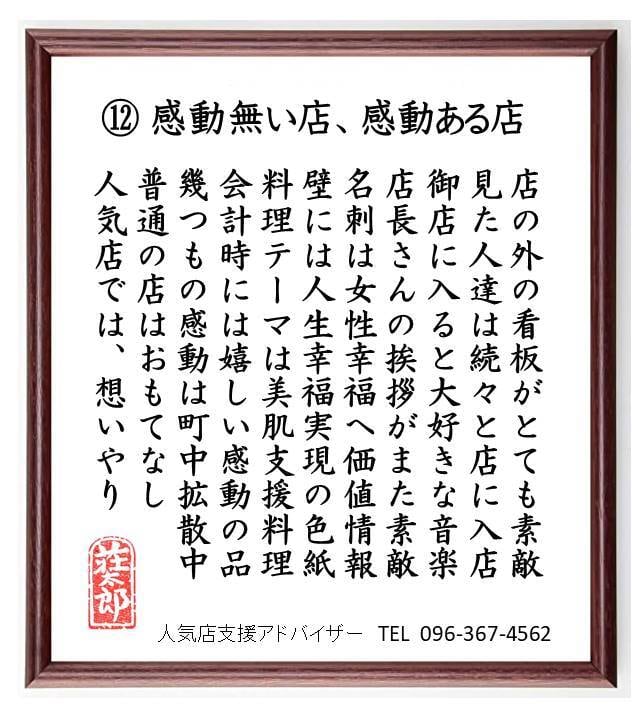 ⑫ 感動無い店、感動ある店
店の外の看板がとても素敵
見た人達は続々と店に入店
御店に入ると大好きな音楽
店長さんの挨拶がまた素敵
名刺は女性幸福へ価値情報
壁には人生幸福実現の色紙
料理テーマは美肌支援料理
会計時には嬉しい感動の品
幾つもの感動は町中拡散中
普通の店はおもてなし
人気店では、想いやり
荘太郎
人気店支援アドバイザー TEL 096-367-4562